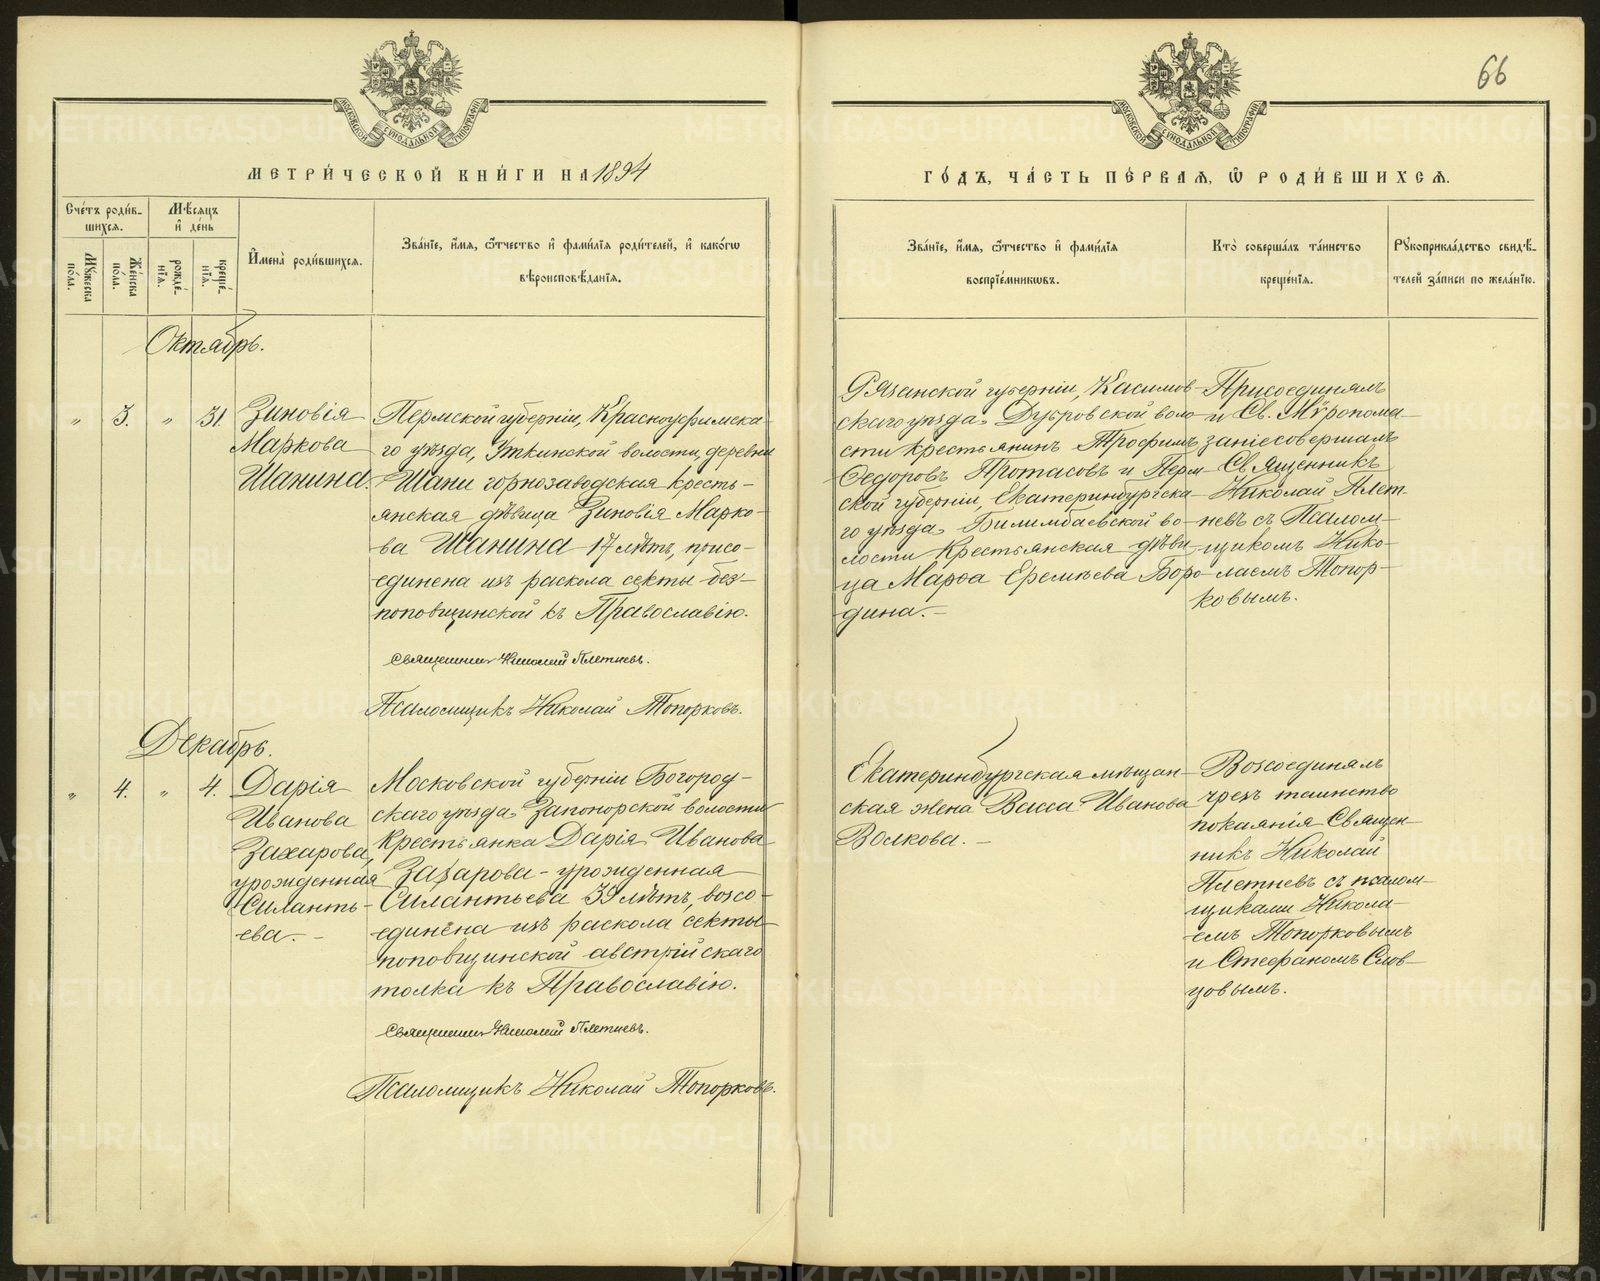 66
МОСКОВСКОЙ СѴНОДАЛЬНОЙ ТИПОГРАФІИ
МЕТРИ́ЧЕСКОЙ КНИ́ГИ НА 1894
Сче́тъ роди́в-
шихся.
Мѣ́сяцъ
и҆ де́нь
Мꙋ́жеска
по́ла.
Же́нска
по́ла.
рожде́-
нїѧ.
креще́-
нїѧ.
И҆мена̀ роди́вшихсѧ.
Зва́нїе, и҆́мѧ, ѻ҆́тчество и҆ фами́лїѧ роди́телей, и҆ како́гѡ
вѣроисповѣ́данїѧ.
Октябрь.
„ 3. „ 31.
Зиновія
Маркова
Шанина.
Пермской губерніи, Красноуфимска-
го уѣзда, Уткинской волости, деревни
Шани горнозаводская кресть-
янская дѣвица Зиновія Марко-
ва Шанина 17 лѣтъ, присо-
единена изъ раскола секты без-
поповщинской къ Православію.
Священникъ Николай Плетневъ.
Псаломщикъ Николай Топорковъ.
Декабрь.
„ 4. „ 4.
Дарія
Иванова
Захарова,
урожденная
Силанть-
ева. -
Московской губерніи Богород-
скаго уѣзда Запонорской волости
крестьянка Дарія Иванова
Захарова - урожденная
Силантьева 39 лѣтъ, возсо-
единена изъ раскола секты
поповщинской австрійскаго
толка къ Православію.
Священникъ Николай Плетневъ.
Псаломщикъ Николай Топорковъ.
МОСКОВСКОЙ СѴНОДАЛЬНОЙ ТИПОГРАФІИ
ГО́ДЪ, ЧА́СТЬ ПЕ́РВАѦ, Ѡ҆ РОДИ́ВШИХСѦ.
Зва́нїе, и҆́мѧ, ѻ҆́тчество и҆ фами́лїѧ
воспрїе́мникѡвъ.
Кто̀ соверша́лъ та́инство
креще́нїѧ.
Рꙋкоприкла́дство свидѣ́-
телей за́писи по жела́нїю.
Рязанской губерніи, Касимов-
скаго уѣзда, Дубровской воло-
сти крестьянинъ Трофимъ
Ѳедоровъ Протасовъ и Перм-
ской губерніи, Екатеринбургска-
го уѣзда, Билимбаевской во-
лости крестьянская дѣви-
ца Марѳа Еремѣева Боро-
дина. -
Присоединялъ
и Св. Мѵропома-
заніе совершалъ
Священникъ
Николай Плет-
невъ съ Псалом-
щикомъ Нико-
лаемъ Топор-
ковымъ.
Екатеринбургская мѣщан-
ская жена Васса Иванова
Волкова. -
Возсоединялъ
чрезъ таинство
покаянія Священ-
никъ Николай
Плетневъ съ псалом-
щиками Никола-
емъ Топорковымъ
и Стефаномъ Слов-
цовымъ.
METRIKI.GASO-URAL.RU